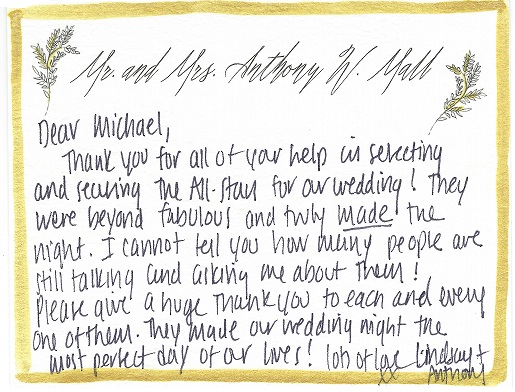 Mr. and Mrs. Anthony W. Mall
Dear Michael,
Thank you for all of your help in selecting
and securing the All-Stars for our wedding! They
were beyond fabulous and truly made the
night. I cannot tell you how many people are
still talking and asking me about them!
Please give a huge thank you to each and every
one of them. They made our wedding night the
most perfect day of our lives! lots of love Lindsay +
Anthony